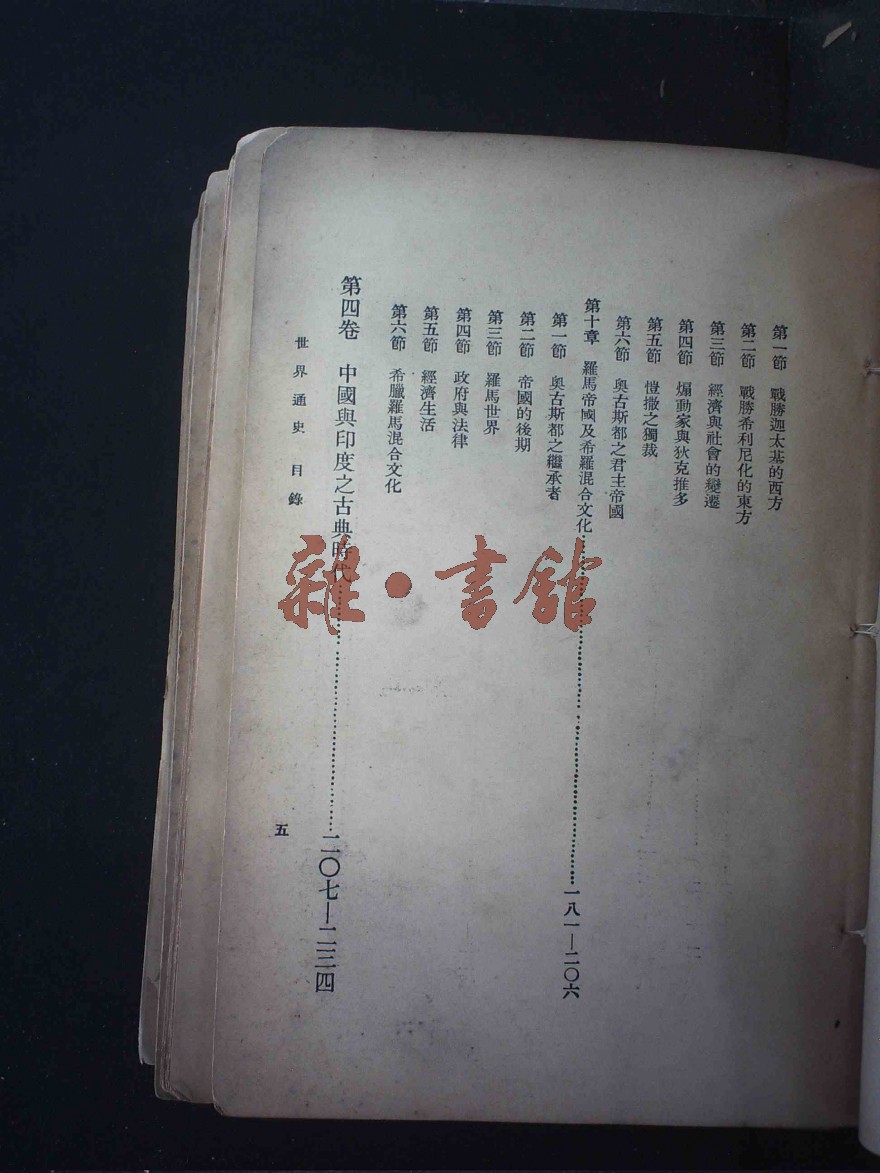 第一節 戰勝迦太基的西方
第二節 戰勝希利尼化的東方
第三節 經濟與社會的變遷
第四節 煽動家與狄克推多
第五節 愷撒之獨裁
第六節 奧古斯都之君主帝國
第十章 羅馬帝國及希羅混合文化……一八一—二〇六
第一節 奧古斯都之繼承者
第二節 帝國的後期
第三節 羅馬世界
第四節 政府與法律
第五節 經濟生活
第六節 希臘羅馬混合文化
第四卷 中國與印度之古典時代……二〇七—二三四
世界通史 目錄
五
雜·書館